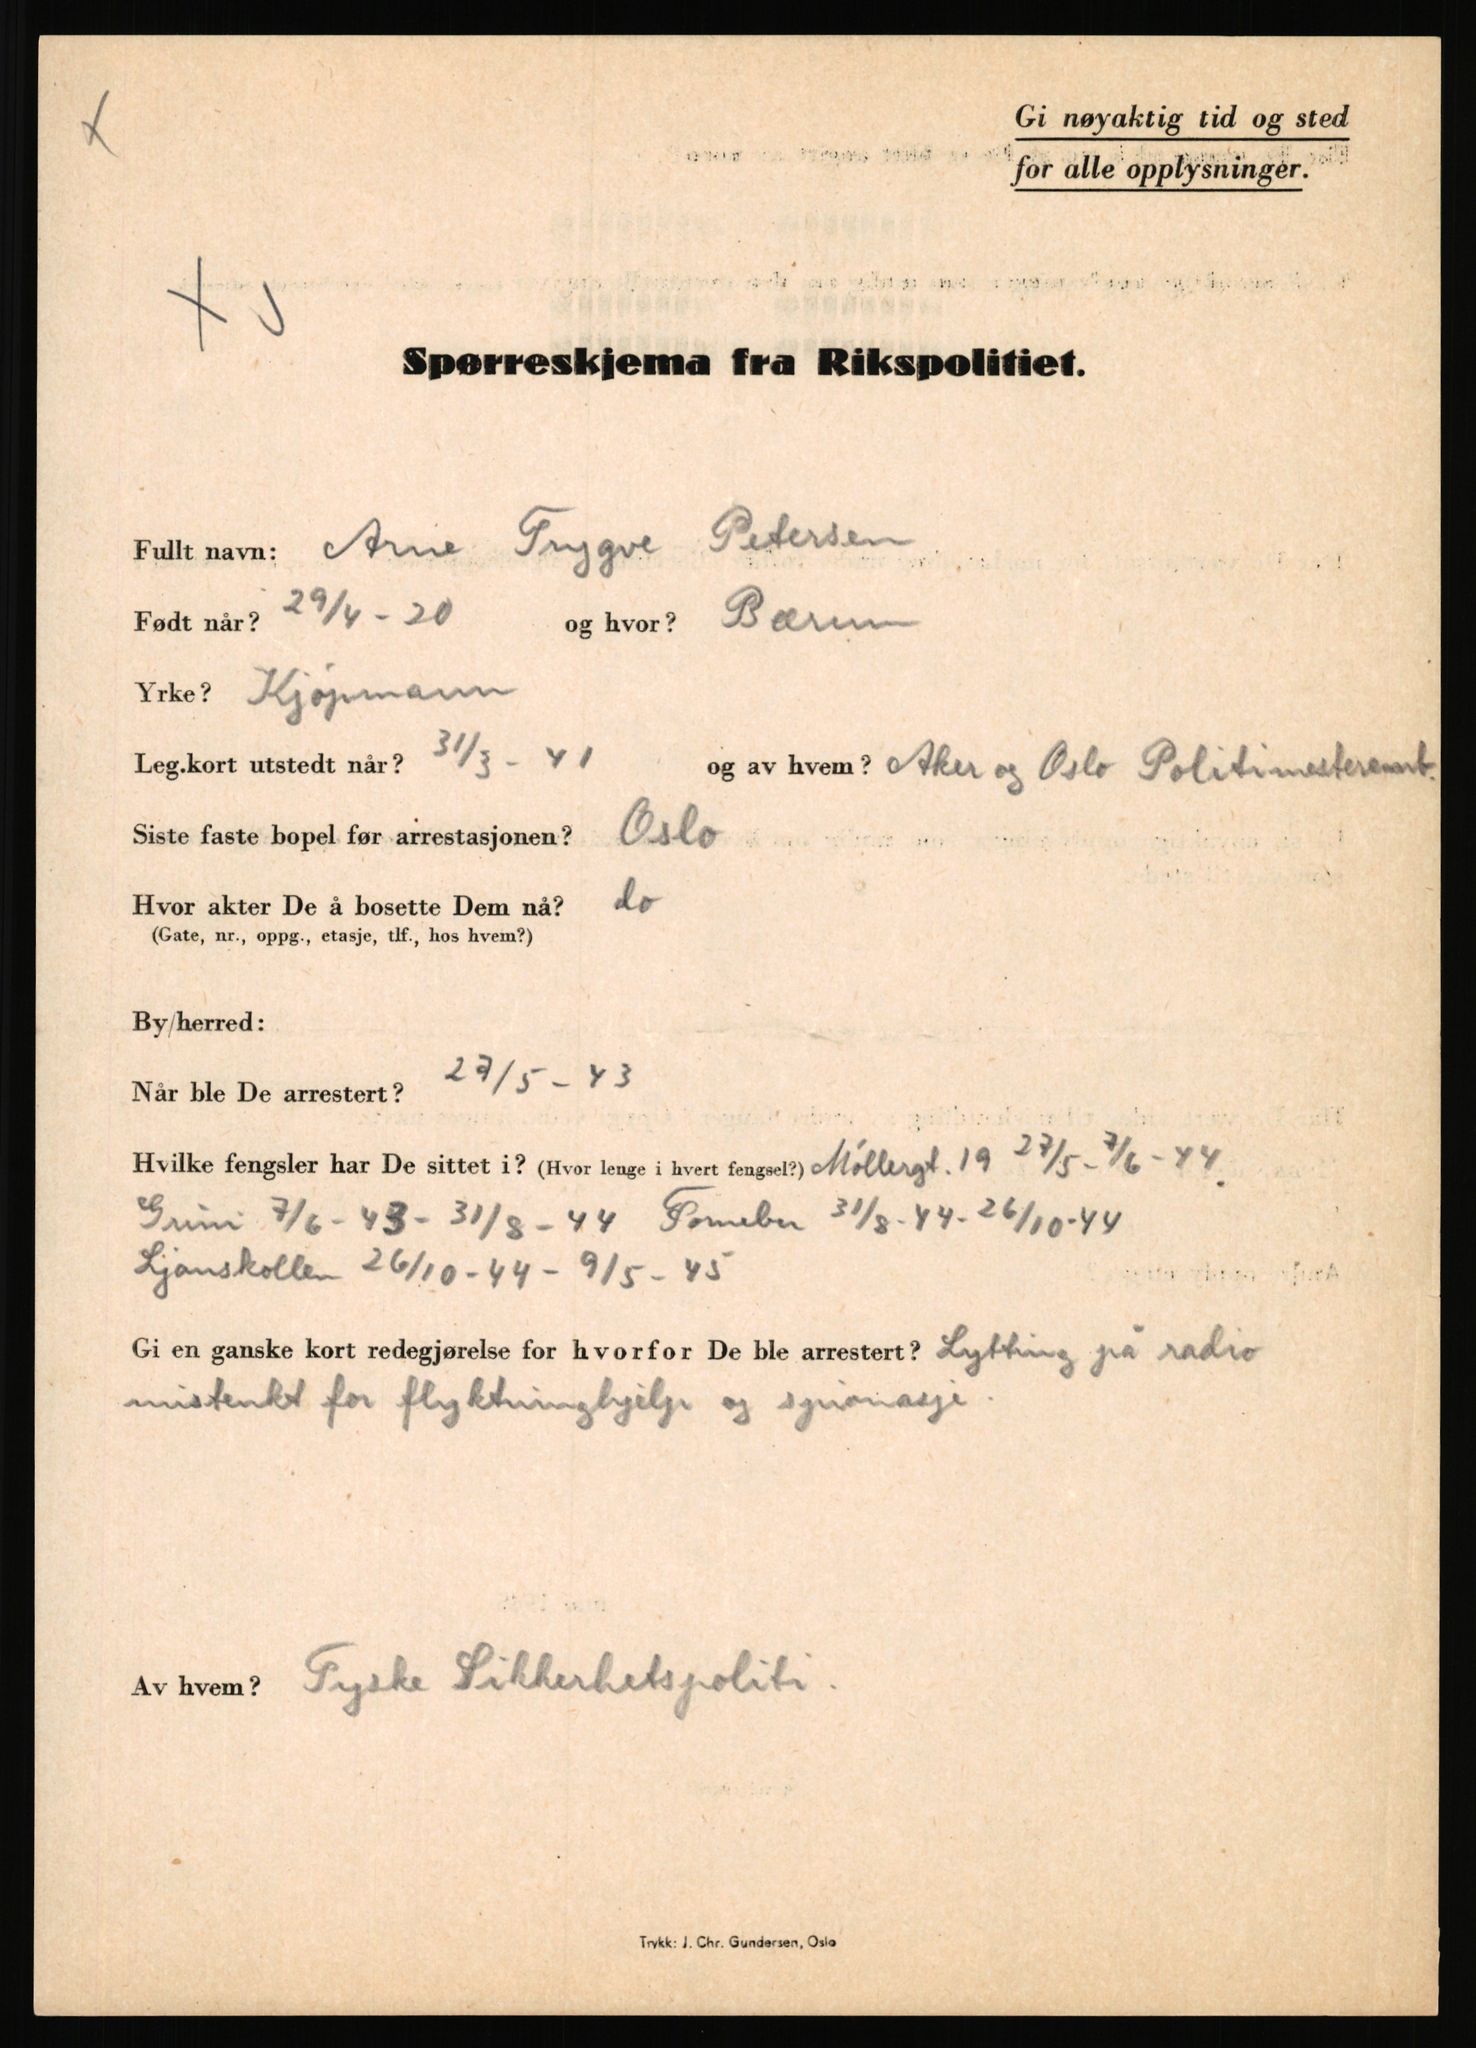 Gi nøyaktig tid og sted
for alle opplysninger.
Spørreskjema fra Rikspolitiet.
Fullt navn: Arne Trygve Petersen
Født når? 29/4 - 20 og hvor? Bærum
Yrke? Kjøpmann
Leg.kort utstedt når? 31/3 - 41 og av hvem? Aker og Oslo
Siste faste bopel før arrestasjonen? Oslo
Hvor akter De å bosette Dem nå? do
(Gate, nr., oppg., etasje, tlf., hos hvem?)
By/herred:
Når ble De arrestert? 27/5 - 43
Hvilke fengsler har De sittet i? (Hvor lenge i hvert fengsel?) Møllergt. 19 27/5 - 7/6 - 44.
Grini 7/6 - 43 - 31/8 - 44 Fornebu 31/8 - 44 - 26/10 - 44
Ljanskollen 26/10 - 44 - 9/5 - 45
Gi en ganske kort redegjørelse for hvorfor De ble arrestert? Lytting på radio
mistenkt for flyktninghjelp og spionasje.
Av hvem? Tyske Sikkerhetspoliti.
Trykk: J. Chr. Gundersen, Oslo